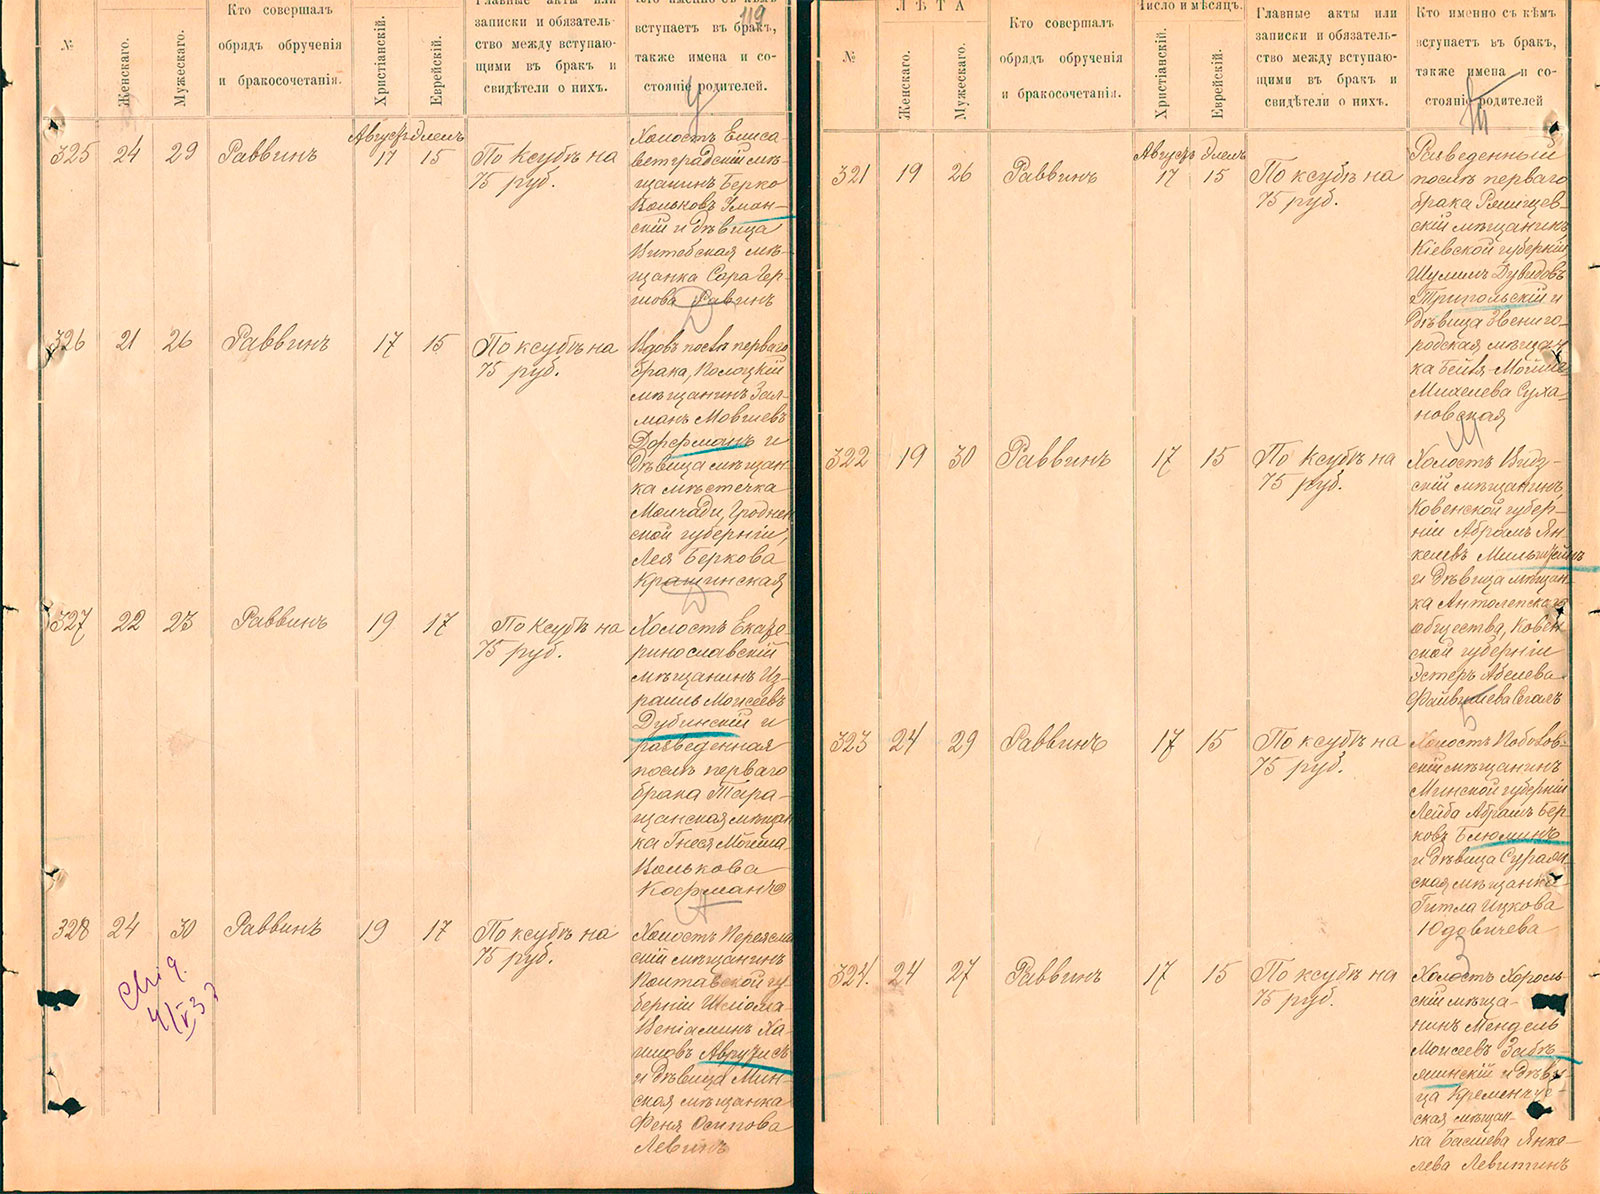 119
№
Женскаго.
Мужескаго.
Кто совершалъ
обрядъ обрученія
и бракосочетанія.
Христіанскій.
Еврейскій.
Главные акты или
записки и обязатель-
ство между вступаю-
щими въ бракъ и
свидѣтели о нихъ.
Кто именно съ кѣмъ
вступаетъ въ бракъ,
также имена и со-
стояніе родителей.
Августъ Элемъ
325 24 29 Раввинъ 17 15
По ксубѣ на
75 руб.
Холостъ Елиса-
ветградскій мѣ-
щанинъ Берко
Вольковъ Уман-
скій и дѣвица
Витебская мѣ-
щанка Сора Гер-
шова Равинъ
326 21 26 Раввинъ 17 15
По ксубѣ на
75 руб.
Вдовъ послѣ перваго
брака, Полоцкій
мѣщанинъ Зал-
манъ Мовшевъ
Дорфманъ и
дѣвица мѣщан-
ка мѣстечка
Молчади, Гроднен
ской губерніи,
Лея Беркова
Крашинская
327 22 23 Раввинъ 19 17
По ксубѣ на
75 руб.
Холостъ Екате-
ринославскій
мѣщанинъ Из-
раиль Моисеевъ
Дубинскій и
разведенная
послѣ перваго
брака Тара-
щанская мѣщан
ка Гнеся Мойша-
Волькова
Кофманъ
328 24 30 Раввинъ 19 17
По ксубѣ на
75 руб.
Холостъ Переясла
скій мѣщанинъ
Полтавской гу-
берніи Шлёма-
Веніаминъ Ха-
имовъ Аврутисъ
и дѣвица Мин-
ская мѣщанка
Феня Осипова
Левинъ
ЛѢТА
№
Женскаго.
Мужескаго.
Кто совершалъ
обрядъ обрученія
и бракосочетанія.
Число и мѣсяцъ.
Христіанскій.
Еврейскій.
Главные акты или
записки и обязатель-
ство между вступаю-
щими въ бракъ и
свидѣтели о нихъ.
Кто именно съ кѣмъ
вступаетъ въ бракъ,
также имена и со-
стояніе родителей
Августъ Элемъ
321 19 26 Раввинъ 17 15
По ксубѣ на
75 руб.
Разведенный
послѣ перваго
брака Ржищев-
скій мѣщанинъ,
Кіевской губерніи,
Шулимъ Дувидовъ
Трипольскій и
дѣвица Звениго-
родская мѣщан
ка Бейля-Мойши
Михелева Суха-
новская
322 19 30 Раввинъ 17 15
По ксубѣ на
75 руб.
Холостъ Видз-
скій мѣщанинъ,
Ковенской губер-
ніи Абрамъ Ян
келевъ Мильштейнъ
и дѣвица мѣщан-
ка Антолепскаго
общества, Ковен-
ской губерніи
Эстеръ Абелева-
Файвишева Сегалъ
323 24 29 Раввинъ 17 15
По ксубѣ на
75 руб.
Холостъ
скій мѣщанинъ
Минской губерніи
Лейба Абрамъ Бер-
ковъ Блюминъ
и дѣвица
ская мѣщанка
Гитла Ицкова
Юдовичева
324. 24 27 Раввинъ 17 15
По ксубѣ на
75 руб.
Холостъ Хороль-
скій мѣща-
нинъ Мендель
Моисеевъ Забѣ-
линскій и дѣви-
ца Кременчуг-
ская мѣщан-
ка Басшева Янке-
лева Левитинъ